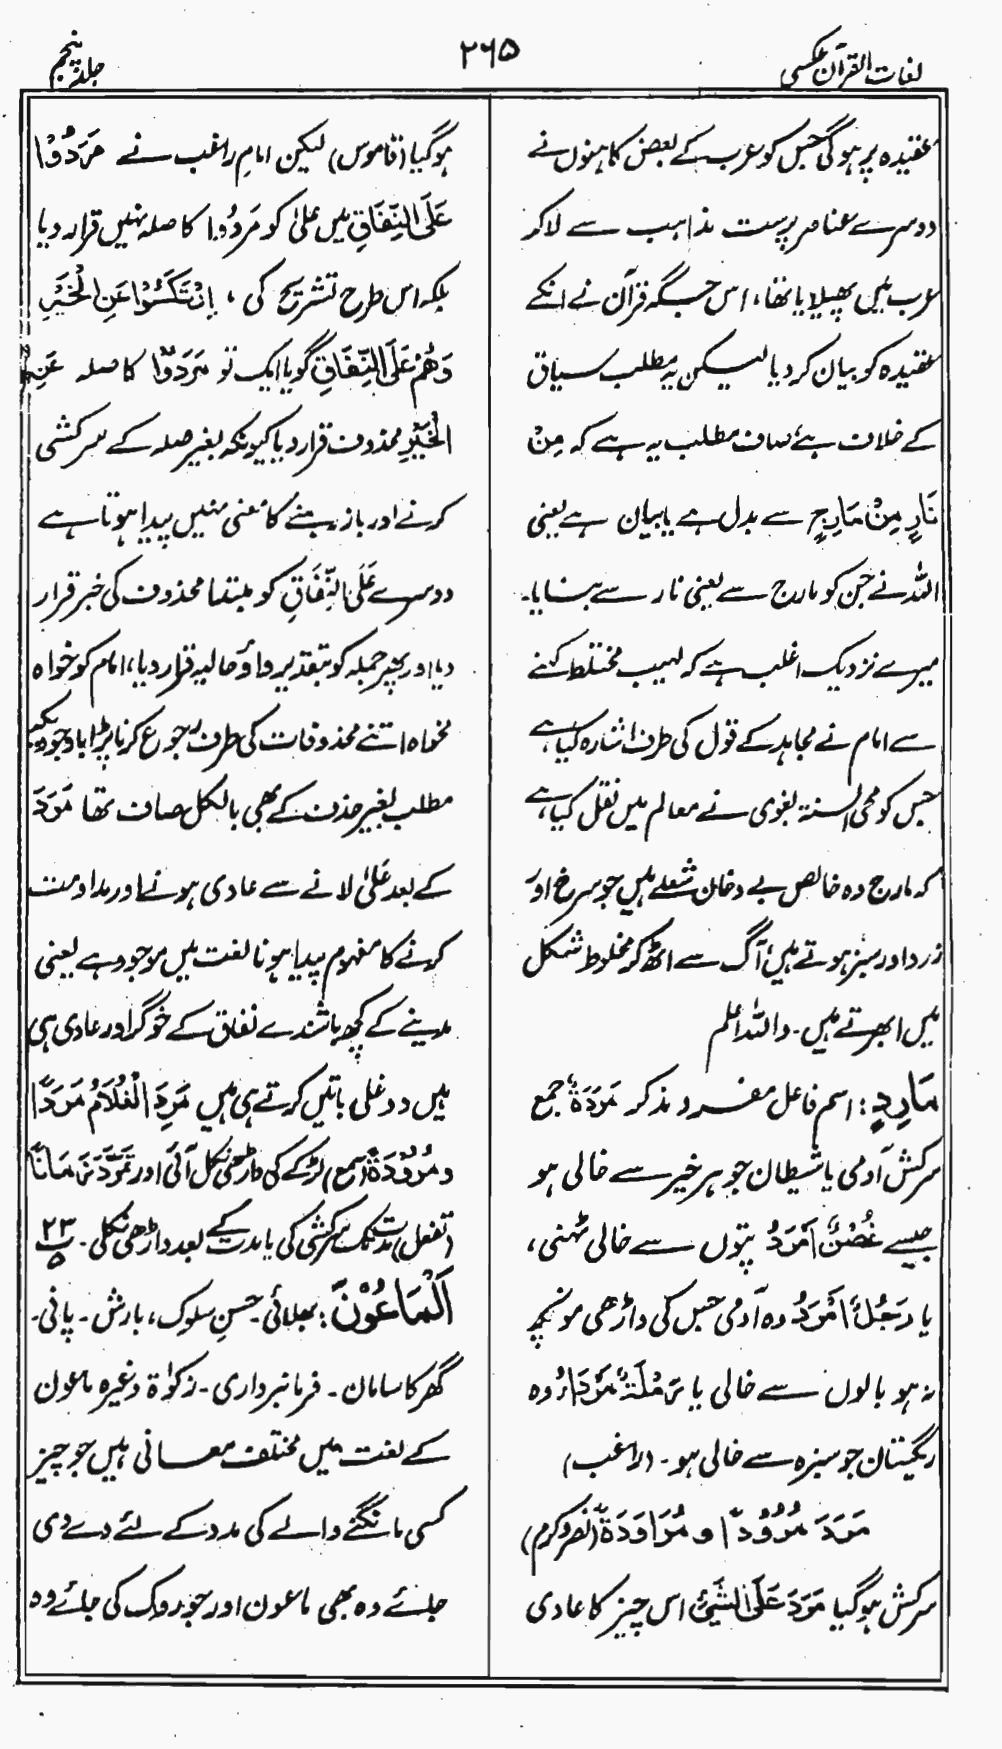 لغات القرآن عکسی
۲۶۵
جلد پنجم
عقیدہ پر ہوگی جس کو عرب کے بعض کاہنوں نے
دوسرے عناصر پرست مذاہب سے لاکر
عرب میں پھیلا دیا تھا، اس جگہ قرآن نے انکے
عقیدہ کو بیان کر دیا لیکن یہ مطلب سیاق
کے خلاف ہے، صاف مطلب یہ ہے کہ مِنْ
نَارٍ مِنْ مَارِجٍ سے بدل ہے یا بیان ہے یعنی
اللہ نے جن کو مارج سے یعنی نار سے بنایا۔
میرے نزدیک اغلب ہے کہ لہیب مختلط کہنے
سے امام نے مجاہد کے قول کی طرف اشارہ کیا ہے
جس کو محی السنۃ بغوی نے معالم میں نقل کیا ہے
کہ مارج وہ خالص بے دخان شعلے ہیں جو سرخ اور
زرد اور سبز ہوتے ہیں آگ سے اٹھ کر مخلوط شکل
میں ابھرتے ہیں۔ واللہ اعلم
مَارِدٍ: اسم فاعل مفرد مذکر مَرَدَۃٌ جمع
سرکش آدمی یا شیطان جو ہر خیر سے خالی ہو
جیسے غُصْنٌ اَمْرَدُ پتوں سے خالی ٹہنی،
یا رَجُلٌ اَمْرَدُ وہ آدمی جس کی داڑھی مونچھ
نہ ہو بالوں سے خالی یا رَمْلَۃٌ مَرْدَاءُ وہ
ریگستان جو سبزہ سے خالی ہو۔ (راغب)
مَرَدَ مُرُوْدًا و مُرَاوَدَۃً (نصر و کرم)
سرکش ہوگیا مَرَدَ عَلَی الشَّیْئِ اس چیز کا عادی
ہوگیا (قاموس) لیکن امام راغب نے مَرَدُوْا
عَلَی النِّفَاقِ میں علیٰ کو مَرَدُوا کا صلہ نہیں قرار دیا
بلکہ اس طرح تشریح کی، اِرْتَکَسُوْا عَنِ الْخَیْرِ
وَھُمْ عَلَی النِّفَاقِ گویا ایک تو مَرَدُوْا کا صلہ عَنِ
الْخَیْرِ محذوف قرار دیا کیونکہ بغیر صلہ کے سرکشی
کرنے اور باز رہنے کا معنی نہیں پیدا ہوتا ہے
دوسرے عَلَی النِّفَاقِ کو مبتدا محذوف کی خبر قرار
دیا اور پھر جملہ کو بتقدیر واؤ حالیہ قرار دیا، امام کو خواہ
نخواہ اتنے محذوفات کی طرف رجوع کرنا پڑا باوجودیکہ
مطلب بغیر حذف کے بھی بالکل صاف تھا مَرَدَ
کے بعد عَلیٰ لانے سے عادی ہونے اور مداومت
کرنے کا مفہوم پیدا ہونا لغت میں موجود ہے یعنی
مدینے کے کچھ باشندے نفاق کے خوگر اور عادی ہی
ہیں دوغلی باتیں کرتے ہی ہیں مَرِدَ الْغُلَامُ مَرَدًا
و مُرُوْدَۃً (سمع) لڑکے کی داڑھی نکل آئی اور تَمَرَّدَ زَمَانًا
(تفعل) مدت تک سرکشی کی یا مدت کے بعد داڑھی نکلی۔ ۲۳
۵
اَلْمَاعُوْنَ: بھلائی۔ حسنِ سلوک، بارش۔ پانی۔
گھر کا سامان۔ فرمانبرداری۔ زکوٰۃ وغیرہ ماعون
کے لغت میں مختلف معانی ہیں جو چیز
کسی مانگنے والے کی مدد کے لئے دے دی
جائے وہ بھی ماعون اور جو روک کی جائے وہ